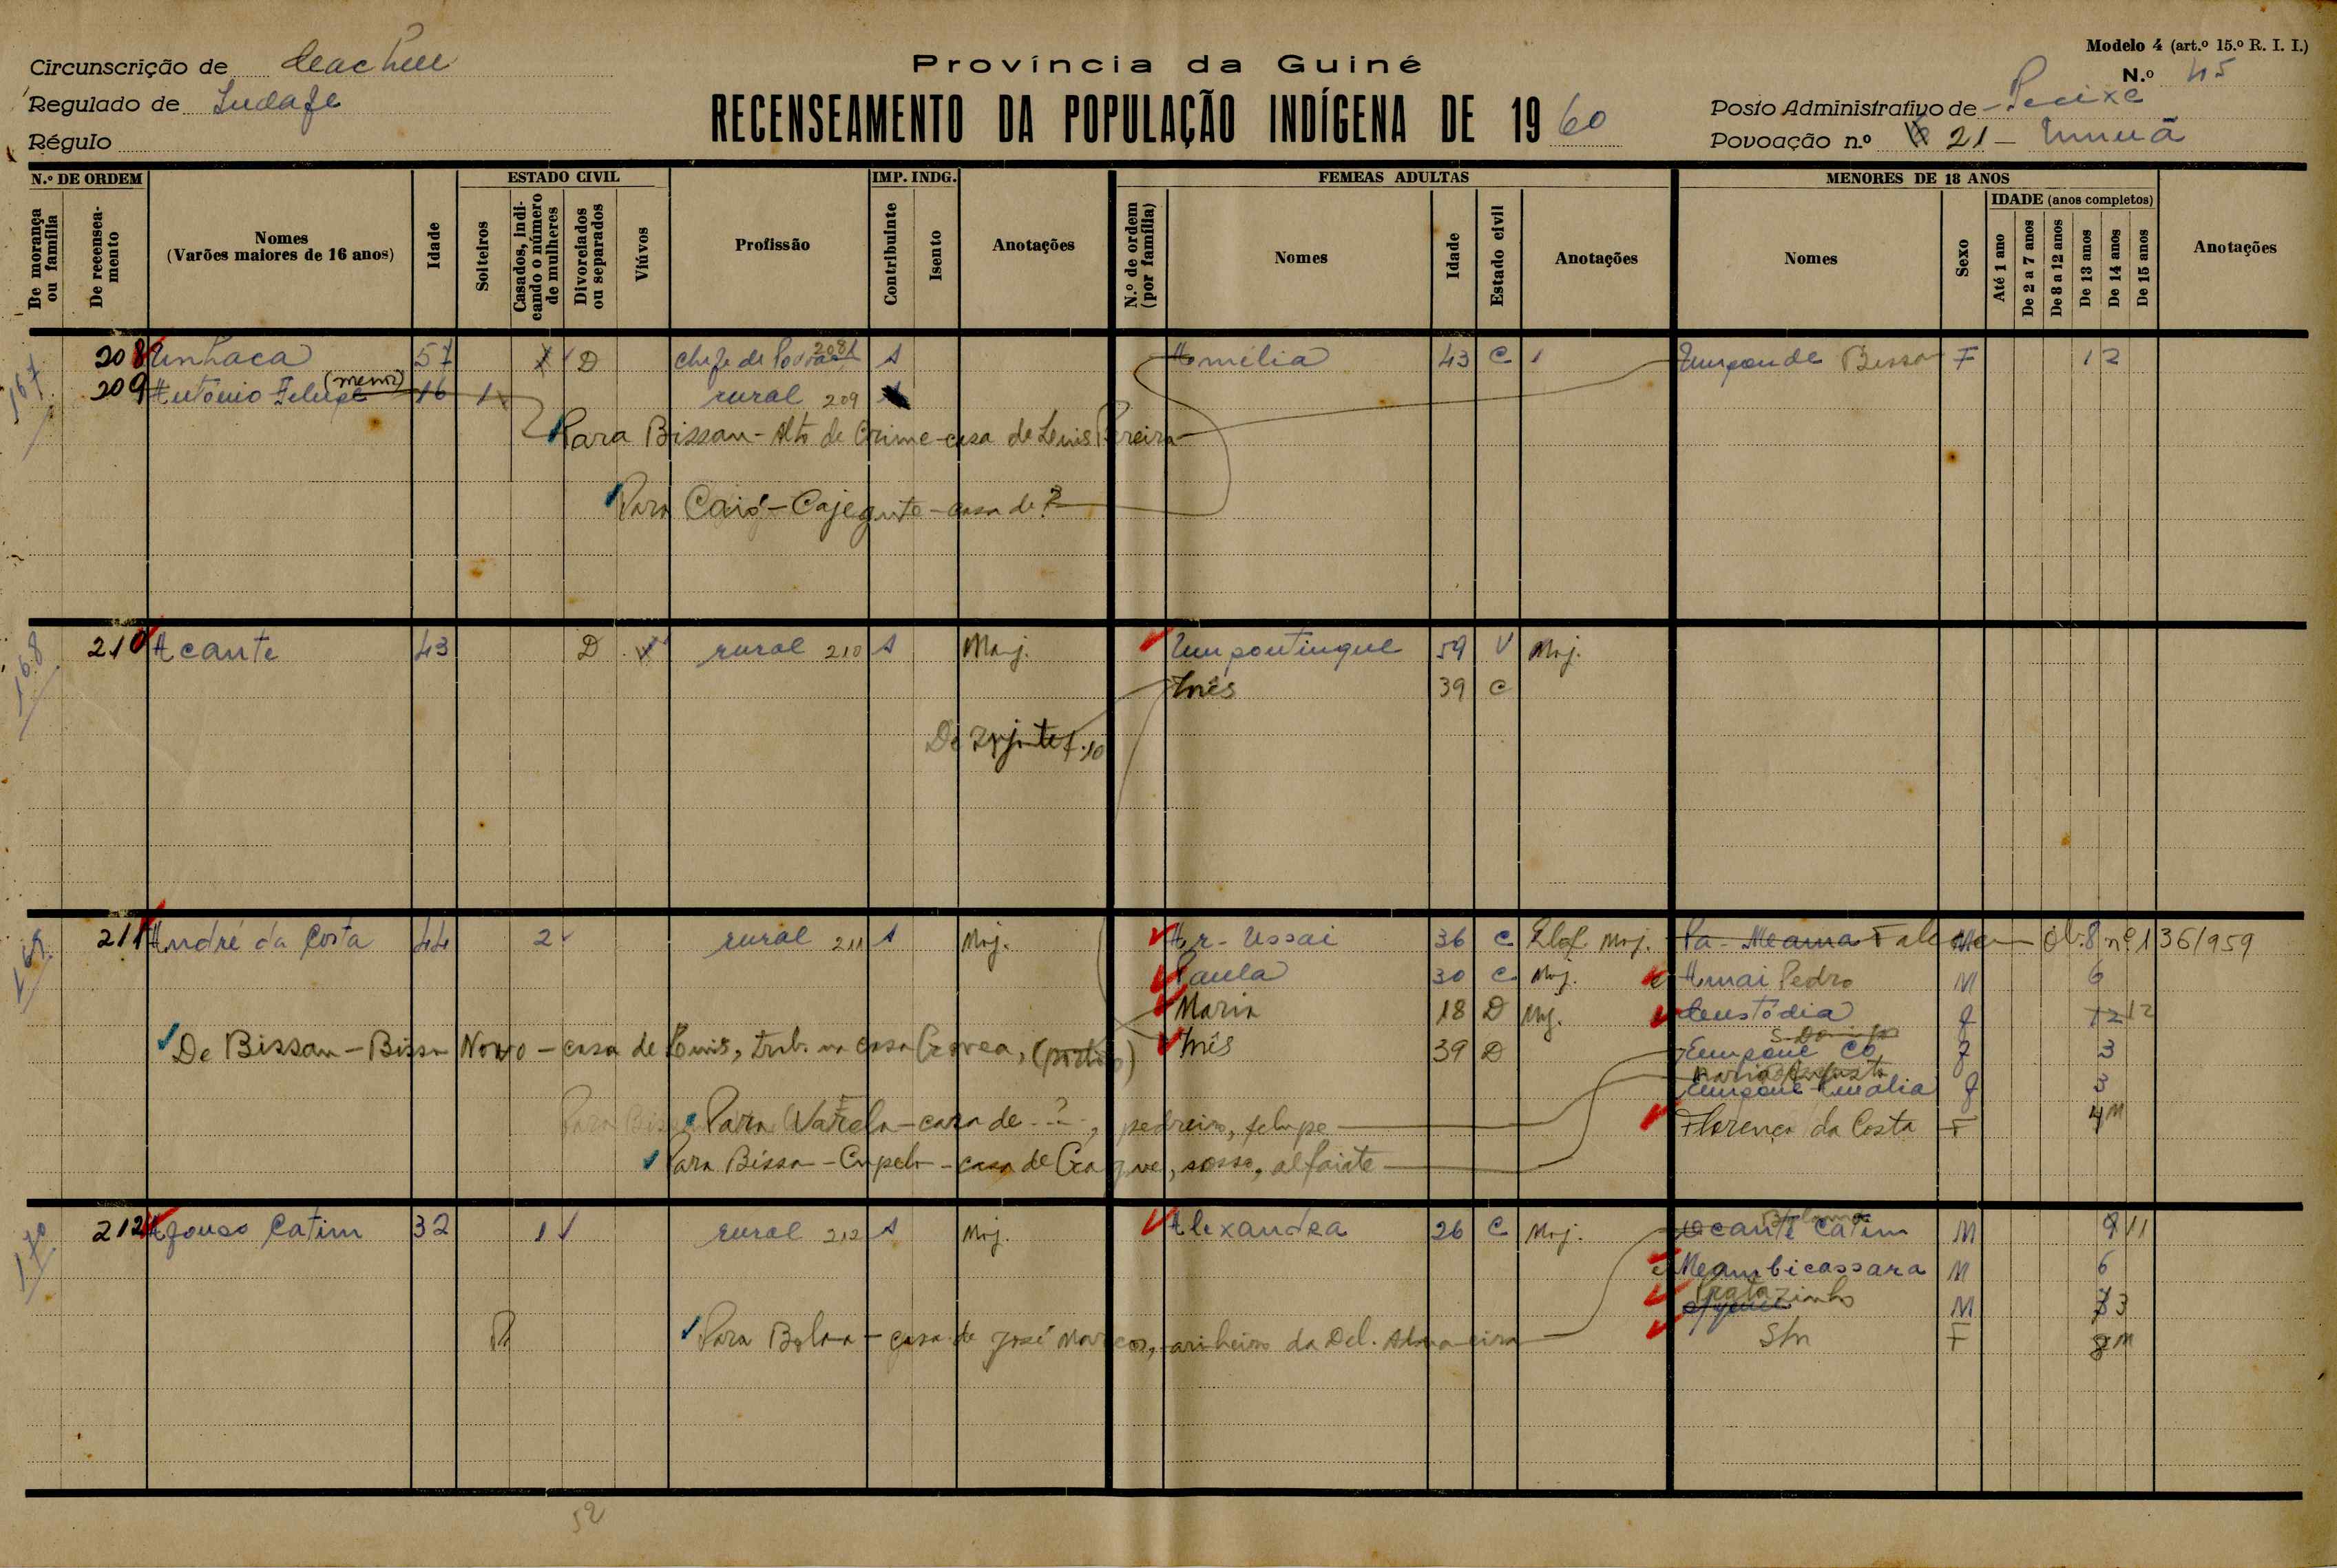 Modelo 4 (art.º 15.º R. I. I.)
Província da Guiné
N.º 45
Circunscrição de Cacheu
Regulado de
Régulo
RECENSEAMENTO DA POPULAÇÃO INDÍGENA DE 1960
Posto Administrativo de Pecixe
Povoação n.º 21 -
N.º DE ORDEM
De morança ou família
De recenseamento
Nomes
(Varões maiores de 16 anos)
Idade
ESTADO CIVIL
Solteiros
Casados, indicando o número de mulheres
Divorciados ou separados
Viúvos
Profissão
IMP. INDG.
Contribuinte
Isento
Anotações
FEMEAS ADULTAS
N.º de ordem (por família)
Nomes
Idade
Estado civil
Anotações
MENORES DE 18 ANOS
Nomes
Sexo
IDADE (anos completos)
Até 1 ano
De 2 a 7 anos
De 8 a 12 anos
De 13 anos
De 14 anos
De 15 anos
Anotações
167
208 Unhaca 57 D chefe de 208 43 C F 12
209 António Felupe (menor) 16 1 rural 209
Para Bissau - Alto de Crime - casa de Luis Pereira
Para Caió - Cajegute - casa de ?
168
210 Acante 43 D rural 210 Maj. Umpontingue 59 V Maj.
Inês 39 C
169
211 André da Costa 44 2 rural 211 Maj. Ussai 36 C Maj. nº 136/959
Paula 30 C Maj. Amai Pedro M 6
Maria 18 D Maj. Custódia F 12 12
De Bissau - Bissau Novo - casa de Luis, trab. na casa Gouvea, Inês 39 D Có F 3
Maria Augusta
Amália F 3
Para Varela - casa de - ? -, pedreiro, felupe Florença da Costa F 4 M
Para Bissau - Cupelo - casa de sosso, alfaiate
170
212 Afonso Catim 32 1 rural 212 Maj. Alexandra 26 C Maj. Ocante Catim M 9 11
Meambicassara M 6
M 3
Para Bolama - casa de José da Del. Aduaneira S/n F 8 M
52